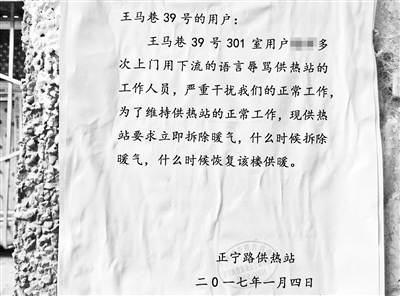 王马巷 39 号的用户：
王马巷 39 号 301 室用户 多
次上门用下流的语言辱骂供热站的
工作人员，严重干扰我们的正常工作，
为了维持供热站的正常工作，现供热
站要求立即拆除暖气，什么时候拆除
暖气，什么时候恢复该楼供暖。
正宁路供热站
二〇一七年一月四日